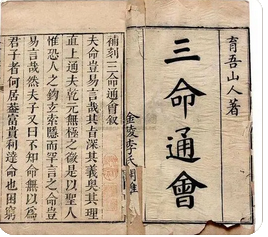 育吾山人著
三命通會
金陵李氏
補刻三命通會叙
夫命豈易言哉其旨深其義奥其理
直上通夫乾元無極之微是以聖人
惟恐人之鉤玄索隱而罕言之命豈
易言哉然夫子又曰不知命無以為
君子者何居蓋富貴利達命也困窮